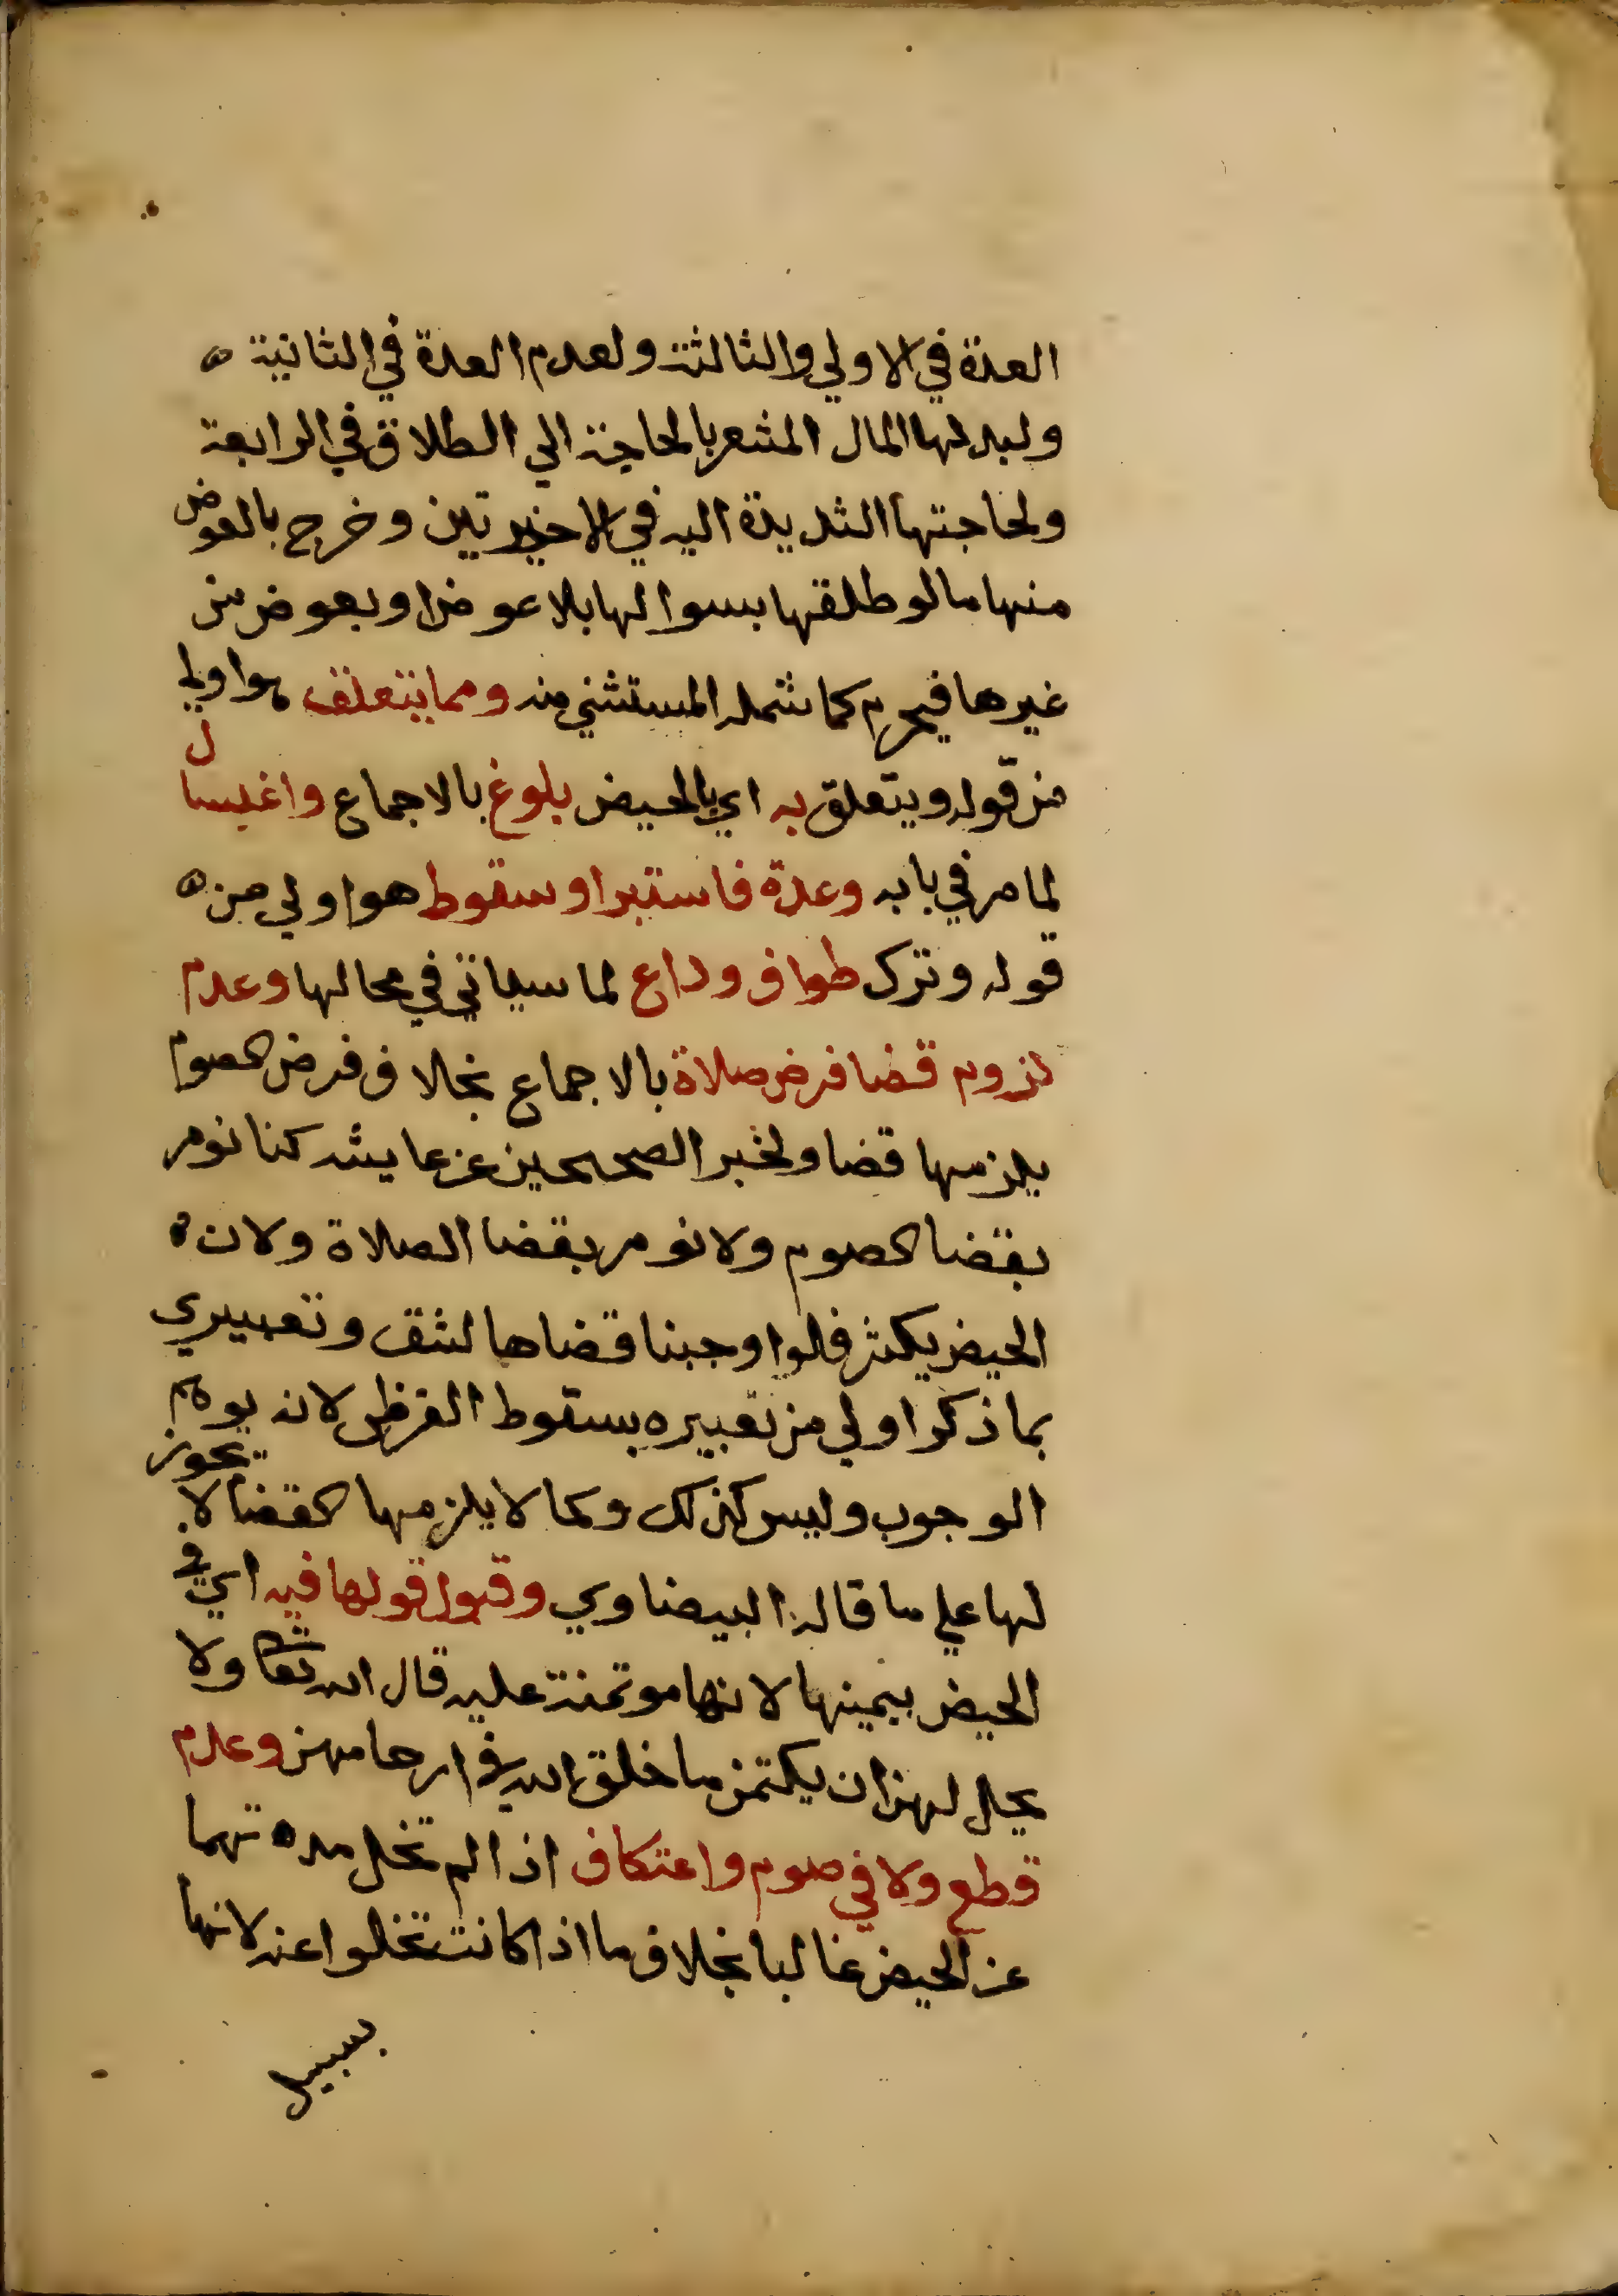 العدة في الاولي والثالثة ولعدم العدة في الثانية ه
ولبدلها المال المشعر بالحاجة الي الطلاق في الرابعة
ولحاجتها الشديدة اليه في الاخيرتين وخرج بالعوض
منها ما لو طلقها بسوالها بلا عوض او بعوض من
غيرها فيحرم كما شمله المستثني منه ومما يتعلق هو اولي
من قوله ويتعلق به اي بالحيض بلوغ بالاجماع واغتسال
لما مر في بابه وعدة فاستبرا وسقوط هو اولي من ه
قوله وترك طواف وداع لما سياتي في محالها وعدم
لزوم قضا فرض صلاة بالاجماع بخلاف فرض الصوم
يلزمها قضاو لخبر الصحيحين عن عايشه كنا نومر
بقضا الصوم ولا نومر بقضا الصلاة ولان ه
الحيض يكثر فلو اوجبنا قضاها لشق وتعبيري
بما ذكر اولي من تعبيره بسقوط الفرض لانه يوهم
الوجوب وليس كذلك وكما لا يلزمها القضا لا يجوز
لها علي ما قاله البيضاوي وقبول قولها فيه اي في
الحيض بيمينها لانها موتمنة عليه قال الله تعا ولا
يحل لهن ان يكتمن ما خلق الله في ارحامهن وعدم
قطع ولا في صوم واعتكاف اذا لم تخل مدتهما
عن الحيض غالبا بخلاف ما اذا كانت تخلوا عنه لانها
بسبيل